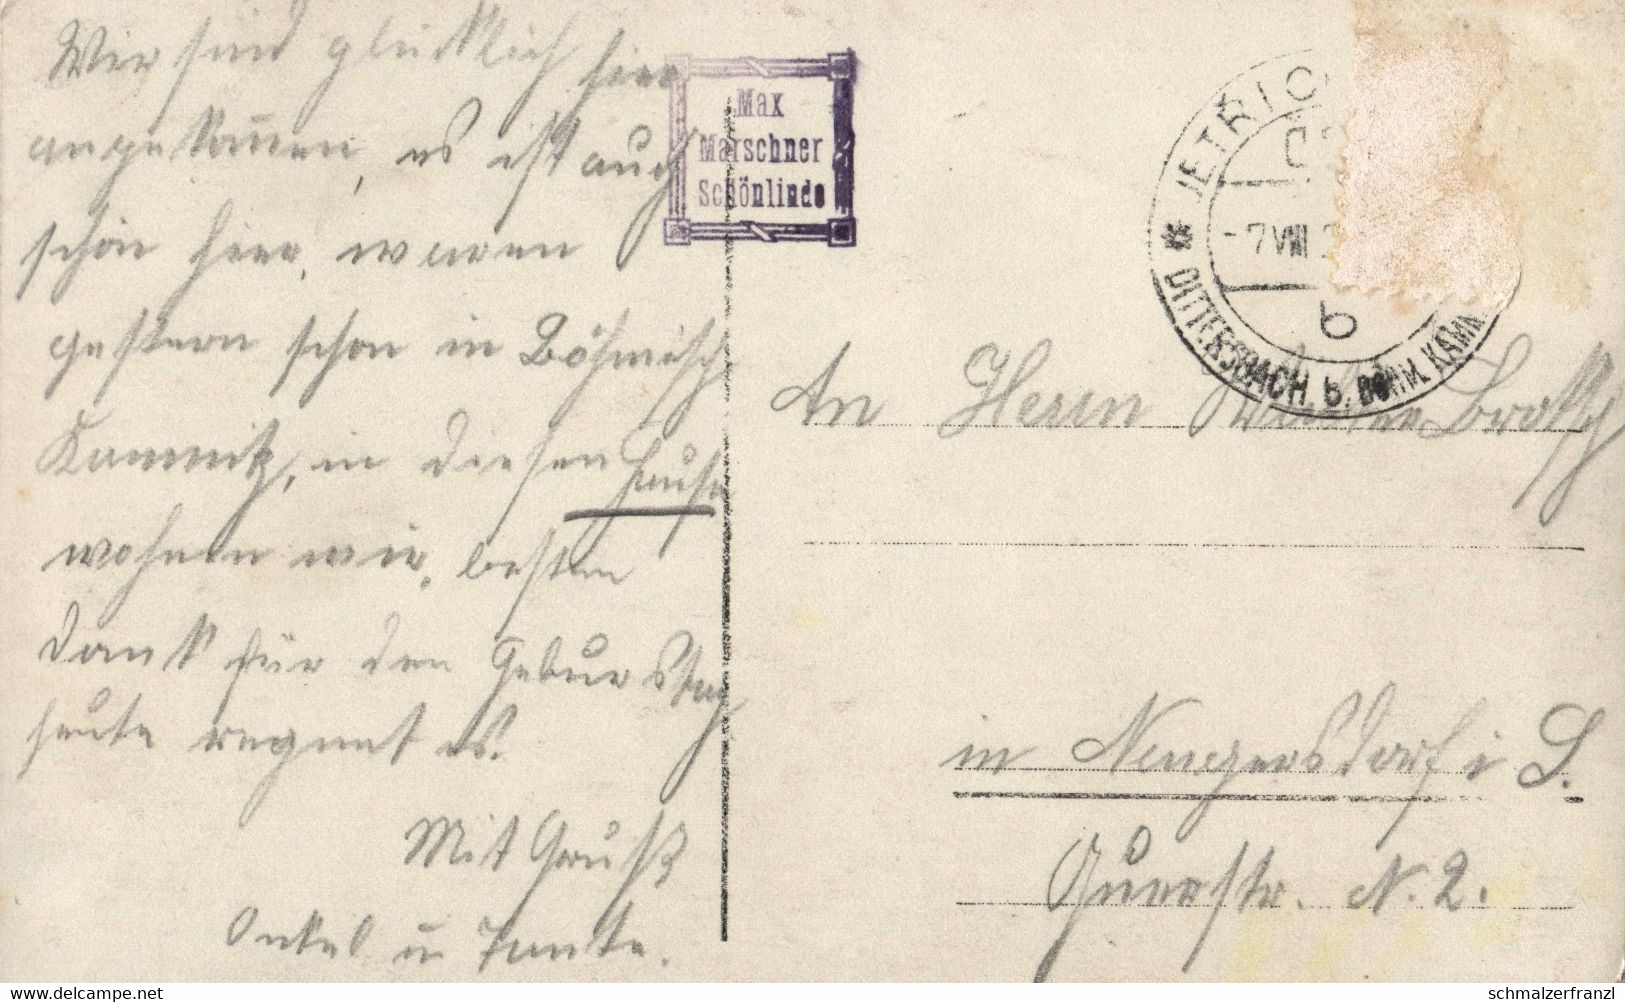 Wir sind glücklich hier
angekom̅en, es ist auch
schön hier, waren
gestern schon in Böhmisch
Kamnitz, in diesen Hause
wohnen wir, besten
Dank für den Geburstag
heute regnet es.
Mit Gruß
Onkel u Tante.
Max
Marschner
Schönlinde
JETŘICH
-7 VIII
6
DITTERSBACH b. BÖHM. KAMN.
An Herrn Walter Brotsch
in Neugersdorf i S.
Querstr. N. 2.
© www.delcampe.net
schmalzerfranzl